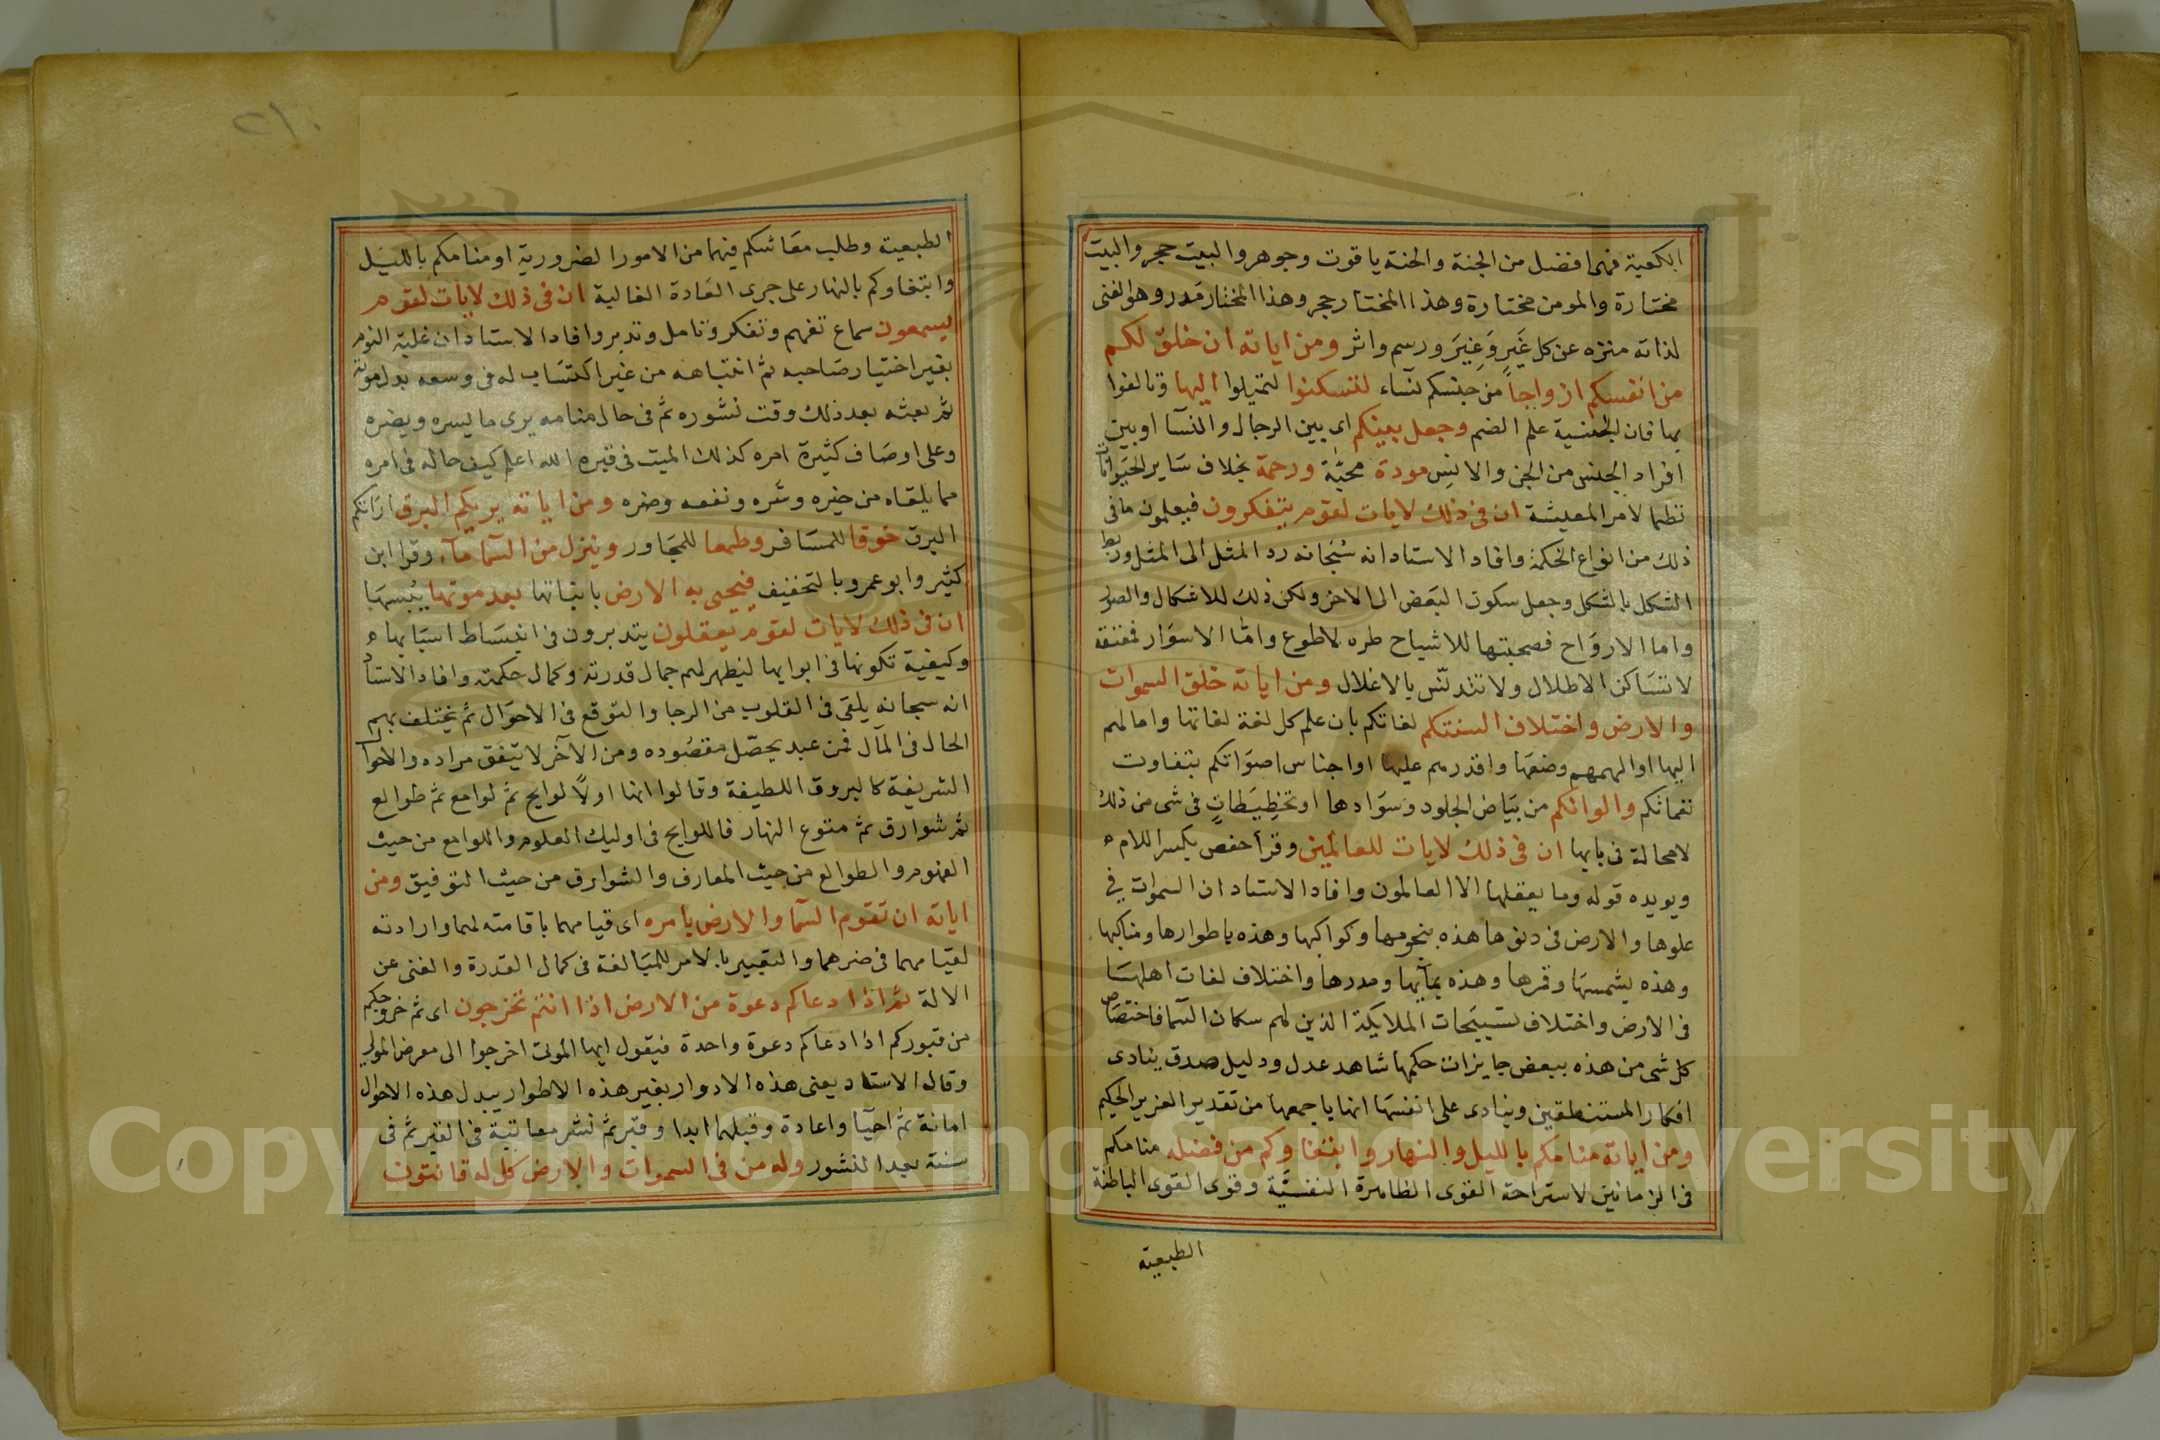 الكعبة فهما افضل من الجنة والجنة ياقوت وجوهر والبيت حجر والبيت
مختارة والمومن مختارة وهذا المختار حجر وهذا المختار مدر وهو الغنى
لذاته منزه عن كل غَيرٍ وَغِيَرَ ورسم واثر ومن اياته ان خلق لكم
من انفسكم ازواجاً من جنسكم نساء لتسكنوا لتميلوا اليها وتالفوا
بها فان الجنسية علم الضم وجعل بينكم اى بين الرجال والنسآ اوبين
افراد الجنس من الجن والانس مودة محبّة ورحمة بخلاف ساير الحيوانات
نظما لامر المعيشة ان فى ذلك لايات لقوم يتفكرون فيعلمون ما فى
ذلك من انواع الحكمة وافاد الاستاد انه سُبحانه رد المثل الى المثل وربط
الشكل بالشكل وجعل سكون البعض الى الاخر ولكن ذلك للاشكال والصور
واما الارواح فصحبتها للاشباح طره لاطوع وامّا الاسوار فمعتقة
لا تساكن الاطلال ولا تتدنّس بالاعلال ومن اياته خلق السموات
والارض واختلاف السنتكم لغاتكم بان علم كل لغة لغاتها واما لهم
اليها اوالهمهم وضعها واقدرهم عليها اواجناس اصواتكم بتفاوت
نغماتكم والوانكم من بياض الجلود وسوادها اوتخطيطات فى شى من ذلك
لامحالة فى بابها ان فى ذلك لايات للعالمين وقرأ حفص بكسر اللام
ويويده قوله وما يعقلها الا العالمون وافاد الاستاد ان السموات في
علوها والارض فى دنوها هذه بنجومها وكواكبها وهذه باطوارها ومناكبها
وهذه بشمسها وقمرها وهذه بمآئها ومدرها واختلاف لغات اهلها
فى الارض واختلاف تسبيحات الملايكة الذين لهم سكان السما فاختصاص
كل شى من هذه ببعض جايزات حكمها شاهد عدل ودليل صدق ينادى
افكار المستنطقين وينادى على انفسها انها باجمعها من تقدير العزيز الحكيم
ومن اياته منامكم بالليل والنهار وابتغاوكم من فضله منامكم
فى الزمانين لاستراحة القوى الظاهرة النفسيّة وقوى القوى الباطنة
الطبعية
الطبعية وطلب معاشكم فيهما من الامور الضرورية اومنامكم بالليل
وابتغاوكم بالنهار على جرى العادة الغالبة ان فى ذلك لايات لقوم
يسمعون سماع تفهم وتفكر وتامل وتدبر وافاد الاستاد ان غلبة النوم
بغير اختيار صاحبه ثم انتباهه من غير اكتساب له فى وسعه يدل موته
ثم بعثه بعد ذلك وقت نشوره ثم فى حال منامه يرى ما يسره ويضره
وعلى اوصاف كثيرة امره كذلك الميت فى قبره الله اعلم كيف حاله فى امره
مما يلقاه من خيره وشره ونفعه وضره ومن اياته يريكم البرق اراتكم
البرق خوفا للمسافر وطمعا للمجاور وينزل من السماء ماء وقرا ابن
كثير وابو عمرو بالتخفيف فيحيى به الارض بانباتها بعد موتها يُبْسهَا
ان فى ذلك لايات لقوم يعقلون يتدبرون فى انبساط اسبابها
وكيفية تكونها فى ابوابها ليظهر لهم جمال قدرته وكمال حكمته وافاد الاستاد
انه سبحانه يلقى فى القلوب من الرجا والتوقع فى الاحوال ثم يختلف بهم
الحال فى المآل فمن عبد يحصّل مقصوده ومن الآخر لا يتّفق مراده والاحوال
الشريفة كالبروق اللطيفة وقالوا انها اولاً لوايح ثم لوامع ثم طوالع
ثم شوارق ثم متوع النهار فاللوايح فى اوليك العلوم واللوامع من حيث
الفهوم والطوالع من حيث المعارف والشوارق من حيث التوفيق ومن
اياته ان تقوم السما والارض بامره اى قيامهما باقامته لهما وارادته
لقيامهما فى ضرهما والتعبير بالامر للمبالغة فى كمال القدرة والغنى عن
الالة ثم اذا دعاكم دعوة من الارض اذا انتم تخرجون اى ثم خروجكم
من قبوركم اذا دعاكم دعوة واحدة فيقول ايها الموتى اخرجوا الى معرض المولى
وقال الاستاد يعنى هذه الادوار بغير هذه الاطوار يبدل هذه الاحوال
اماتة ثم احيآ واعادة وقبلهما ابدا وقبر ثم نشر معاتبة فى القبر ثم فى
سنة بعد النشور وله من فى السموات والارض كل له قانتون
Copyright © King Saud University